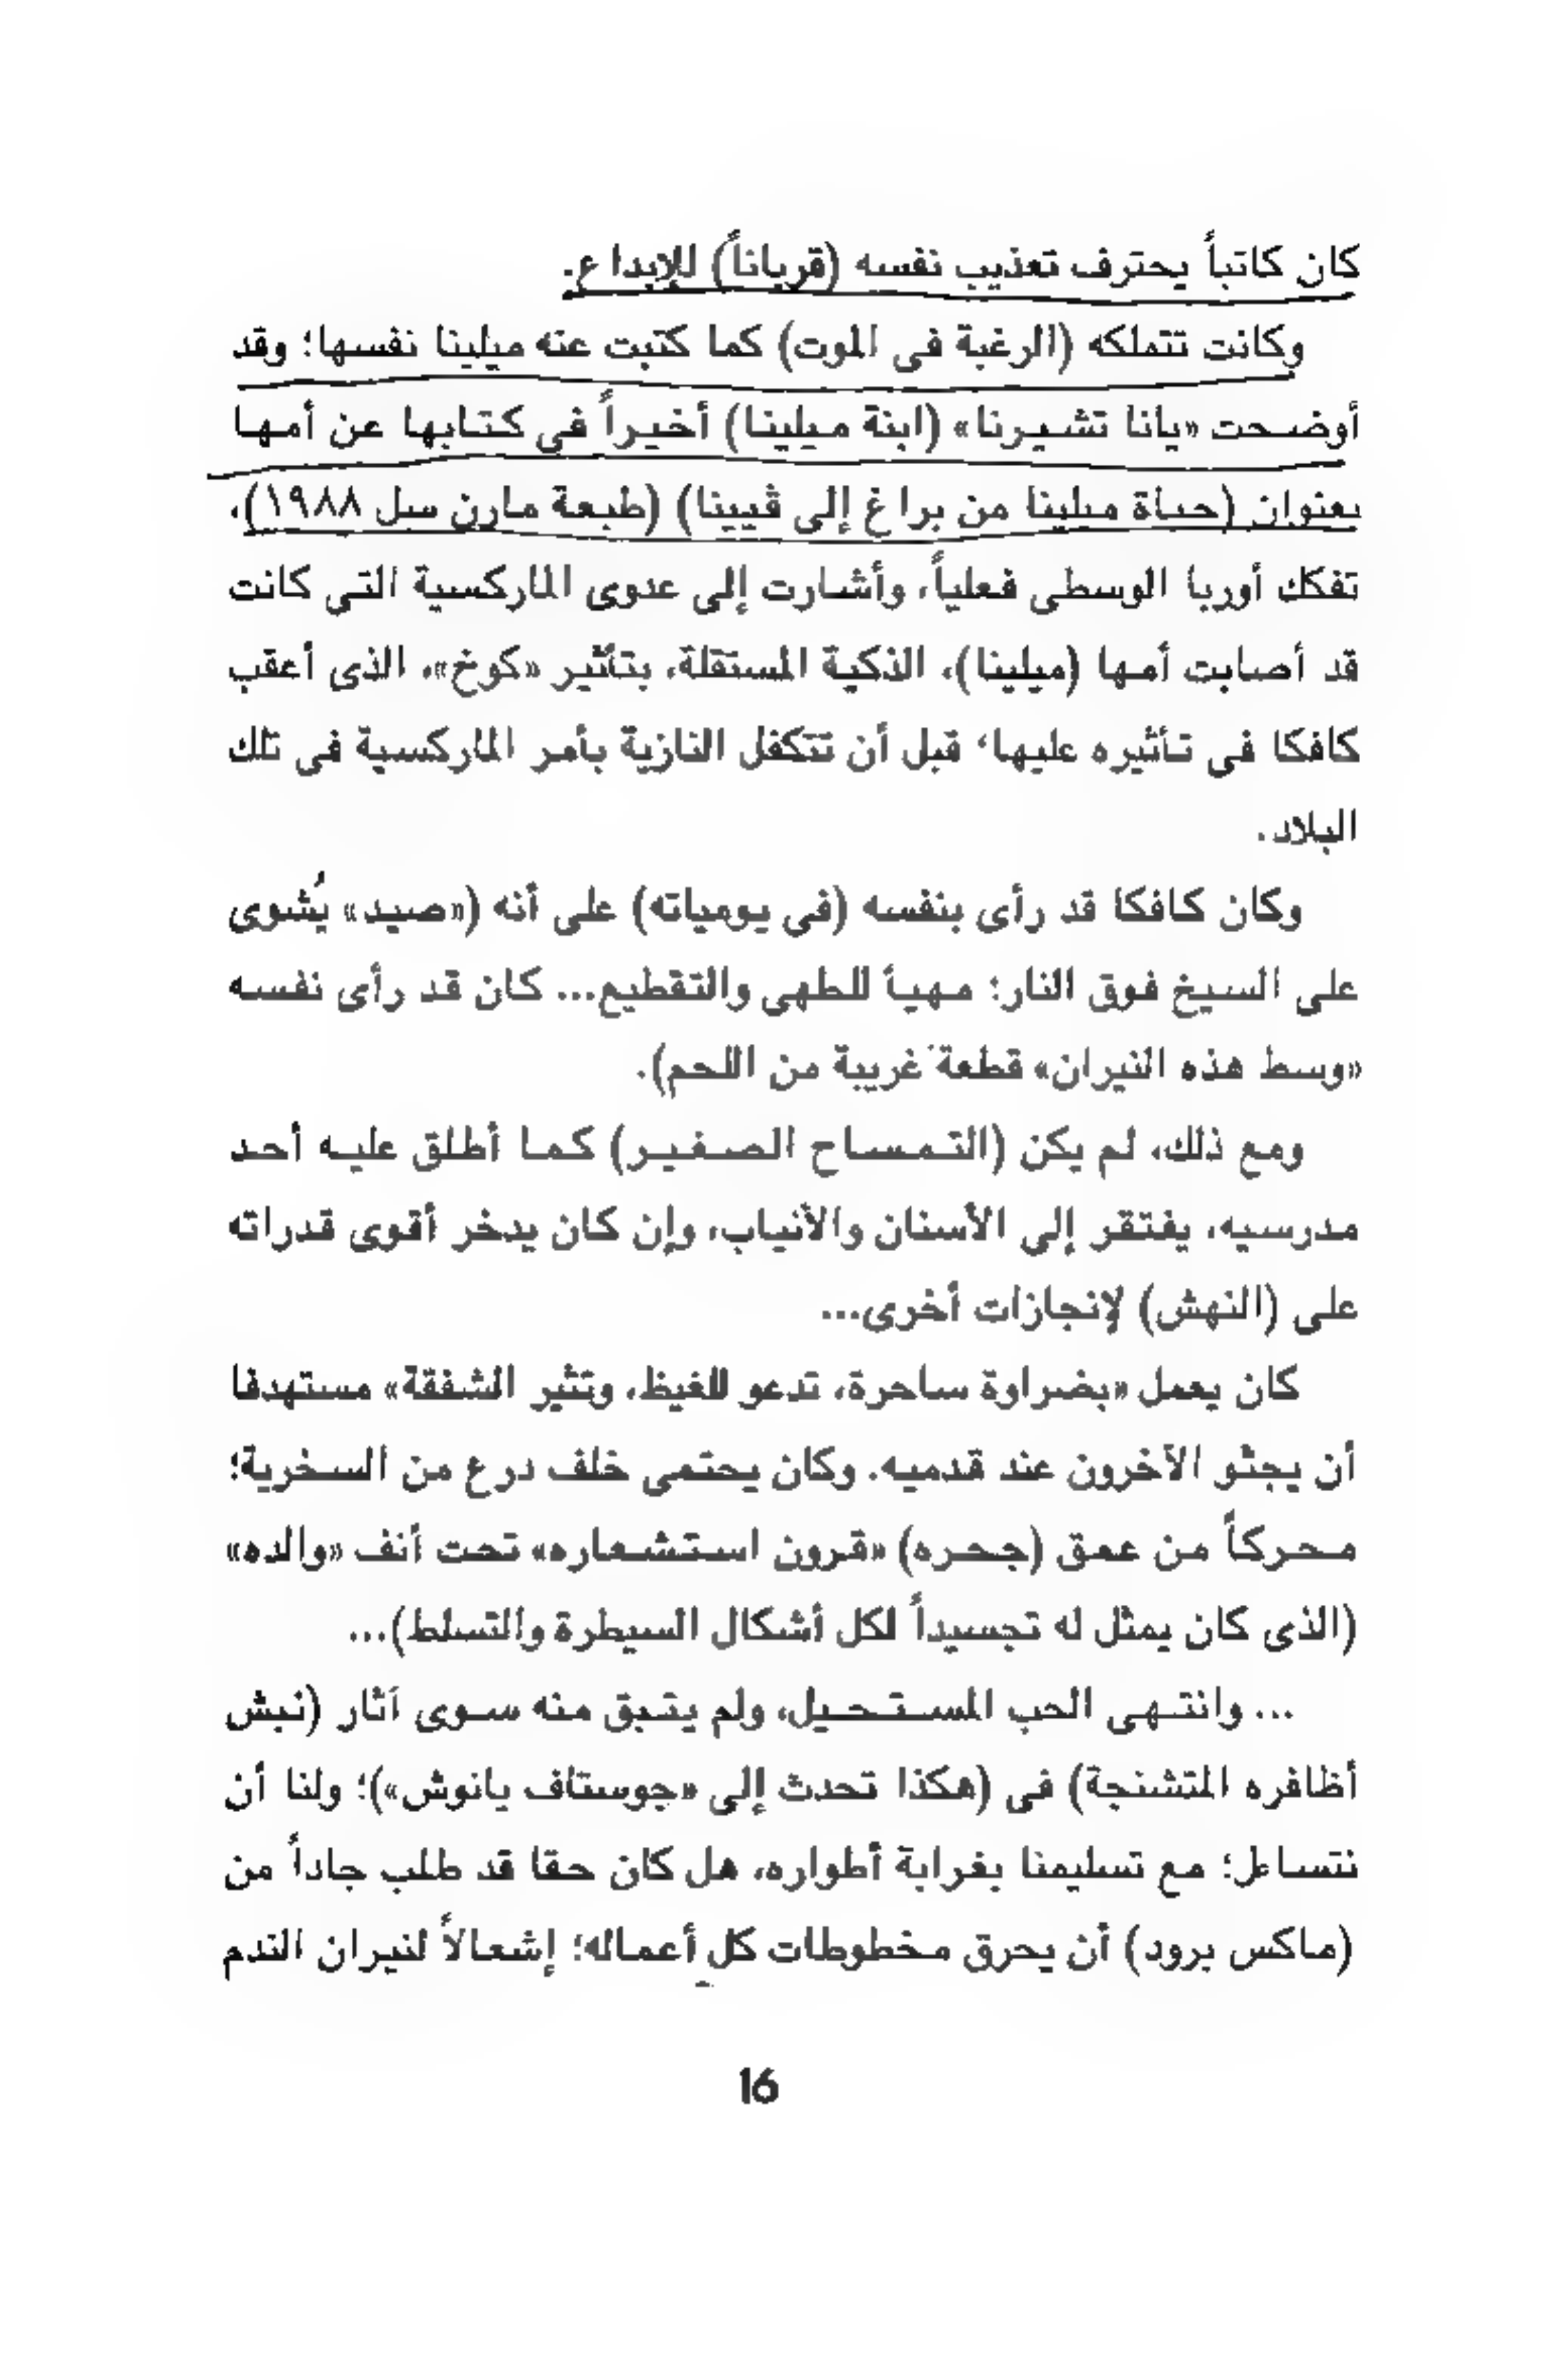 كان كاتباً يحترف تعذيب نفسه (قرباناً) للإبداع.
وكانت تتملكه (الرغبة فى الموت) كما كتبت عنه ميلينا نفسها؛ وقد
أوضحت «يانا تشيرنا» (ابنة ميلينا) أخيراً فى كتابها عن أمها
بعنوان (حياة ميلينا من براغ إلى ڤيينا) (طبعة مارن سل ١٩٨٨)،
تفكك أوربا الوسطى فعلياً، وأشارت إلى عدوى الماركسية التى كانت
قد أصابت أمها (ميلينا)، الذكية المستقلة، بتأثير «كوخ»، الذى أعقب
كافكا فى تأثيره عليها، قبل أن تتكفل النازية بأمر الماركسية فى تلك
البلاد.
وكان كافكا قد رأى بنفسه (فى يومياته) على أنه («صيد» يُشوى
على السيخ فوق النار؛ مهيأ للطهى والتقطيع... كان قد رأى نفسه
«وسط هذه النيران» قطعة غريبة من اللحم).
ومع ذلك، لم يكن (التمساح الصغير) كما أطلق عليه أحد
مدرسيه، يفتقر إلى الأسنان والأنياب، وإن كان يدخر أقوى قدراته
على (النهش) لإنجازات أخرى...
كان يعمل «بضراوة ساحرة، تدعو للغيظ، وتثير الشفقة» مستهدفا
أن يجثو الآخرون عند قدميه. وكان يحتمى خلف درع من السخرية؛
محركاً من عمق (جحره) «قرون استشعاره» تحت أنف «والده»
(الذى كان يمثل له تجسيداً لكل أشكال السيطرة والتسلط)...
... وانتهى الحب المستحيل، ولم يتبق منه سوى آثار (نبش
أظافره المتشنجة) فى (هكذا تحدث إلى «جوستاف يانوش»)؛ ولنا أن
نتساءل؛ مع تسليمنا بغرابة أطواره، هل كان حقا قد طلب جاداً من
(ماكس برود) أن يحرق مخطوطات كل أعماله؛ إشعالاً لنيران الندم
16